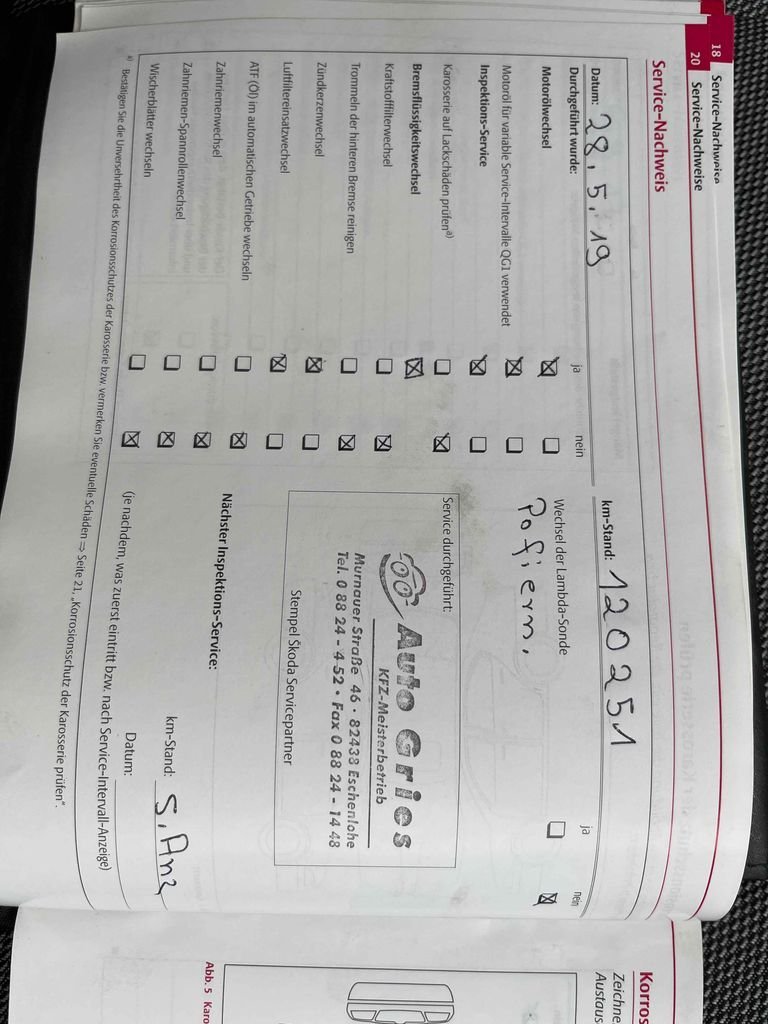 18 Service-Nachweise
20 Service-Nachweise
Service-Nachweis
Datum: 28.5.19
km-Stand: 120251
Durchgeführt wurde: ja nein
Motorölwechsel
Motoröl für variable Service-Intervalle QG1 verwendet
Inspektions-Service
Karosserie auf Lackschäden prüfen a)
Bremsflüssigkeitswechsel
Kraftstofffilterwechsel
Trommeln der hinteren Bremse reinigen
Zündkerzenwechsel
Luftfiltereinsatzwechsel
ATF (Öl) im automatischen Getriebe wechseln
Zahnriemenwechsel
Zahnriemen-Spannrollenwechsel
Wischerblätter wechseln
ja nein
Wechsel der Lambda-Sonde
Service durchgeführt:
Auto Gries
KFZ-Meisterbetrieb
Murnauer Straße 46 · 82438 Eschenlohe
Tel. 0 88 24 - 4 52 · Fax 0 88 24 - 14 48
Stempel Škoda Servicepartner
Nächster Inspektions-Service:
km-Stand: S. Anz
Datum:
(je nachdem, was zuerst eintritt bzw. nach Service-Intervall-Anzeige)
a) Bestätigen Sie die Unversehrtheit des Korrosionsschutzes der Karosserie bzw. vermerken Sie eventuelle Schäden ⇒ Seite 21, „Korrosionsschutz der Karosserie prüfen“.
Korros
Zeichne
Austaus
Abb. 5 Karo